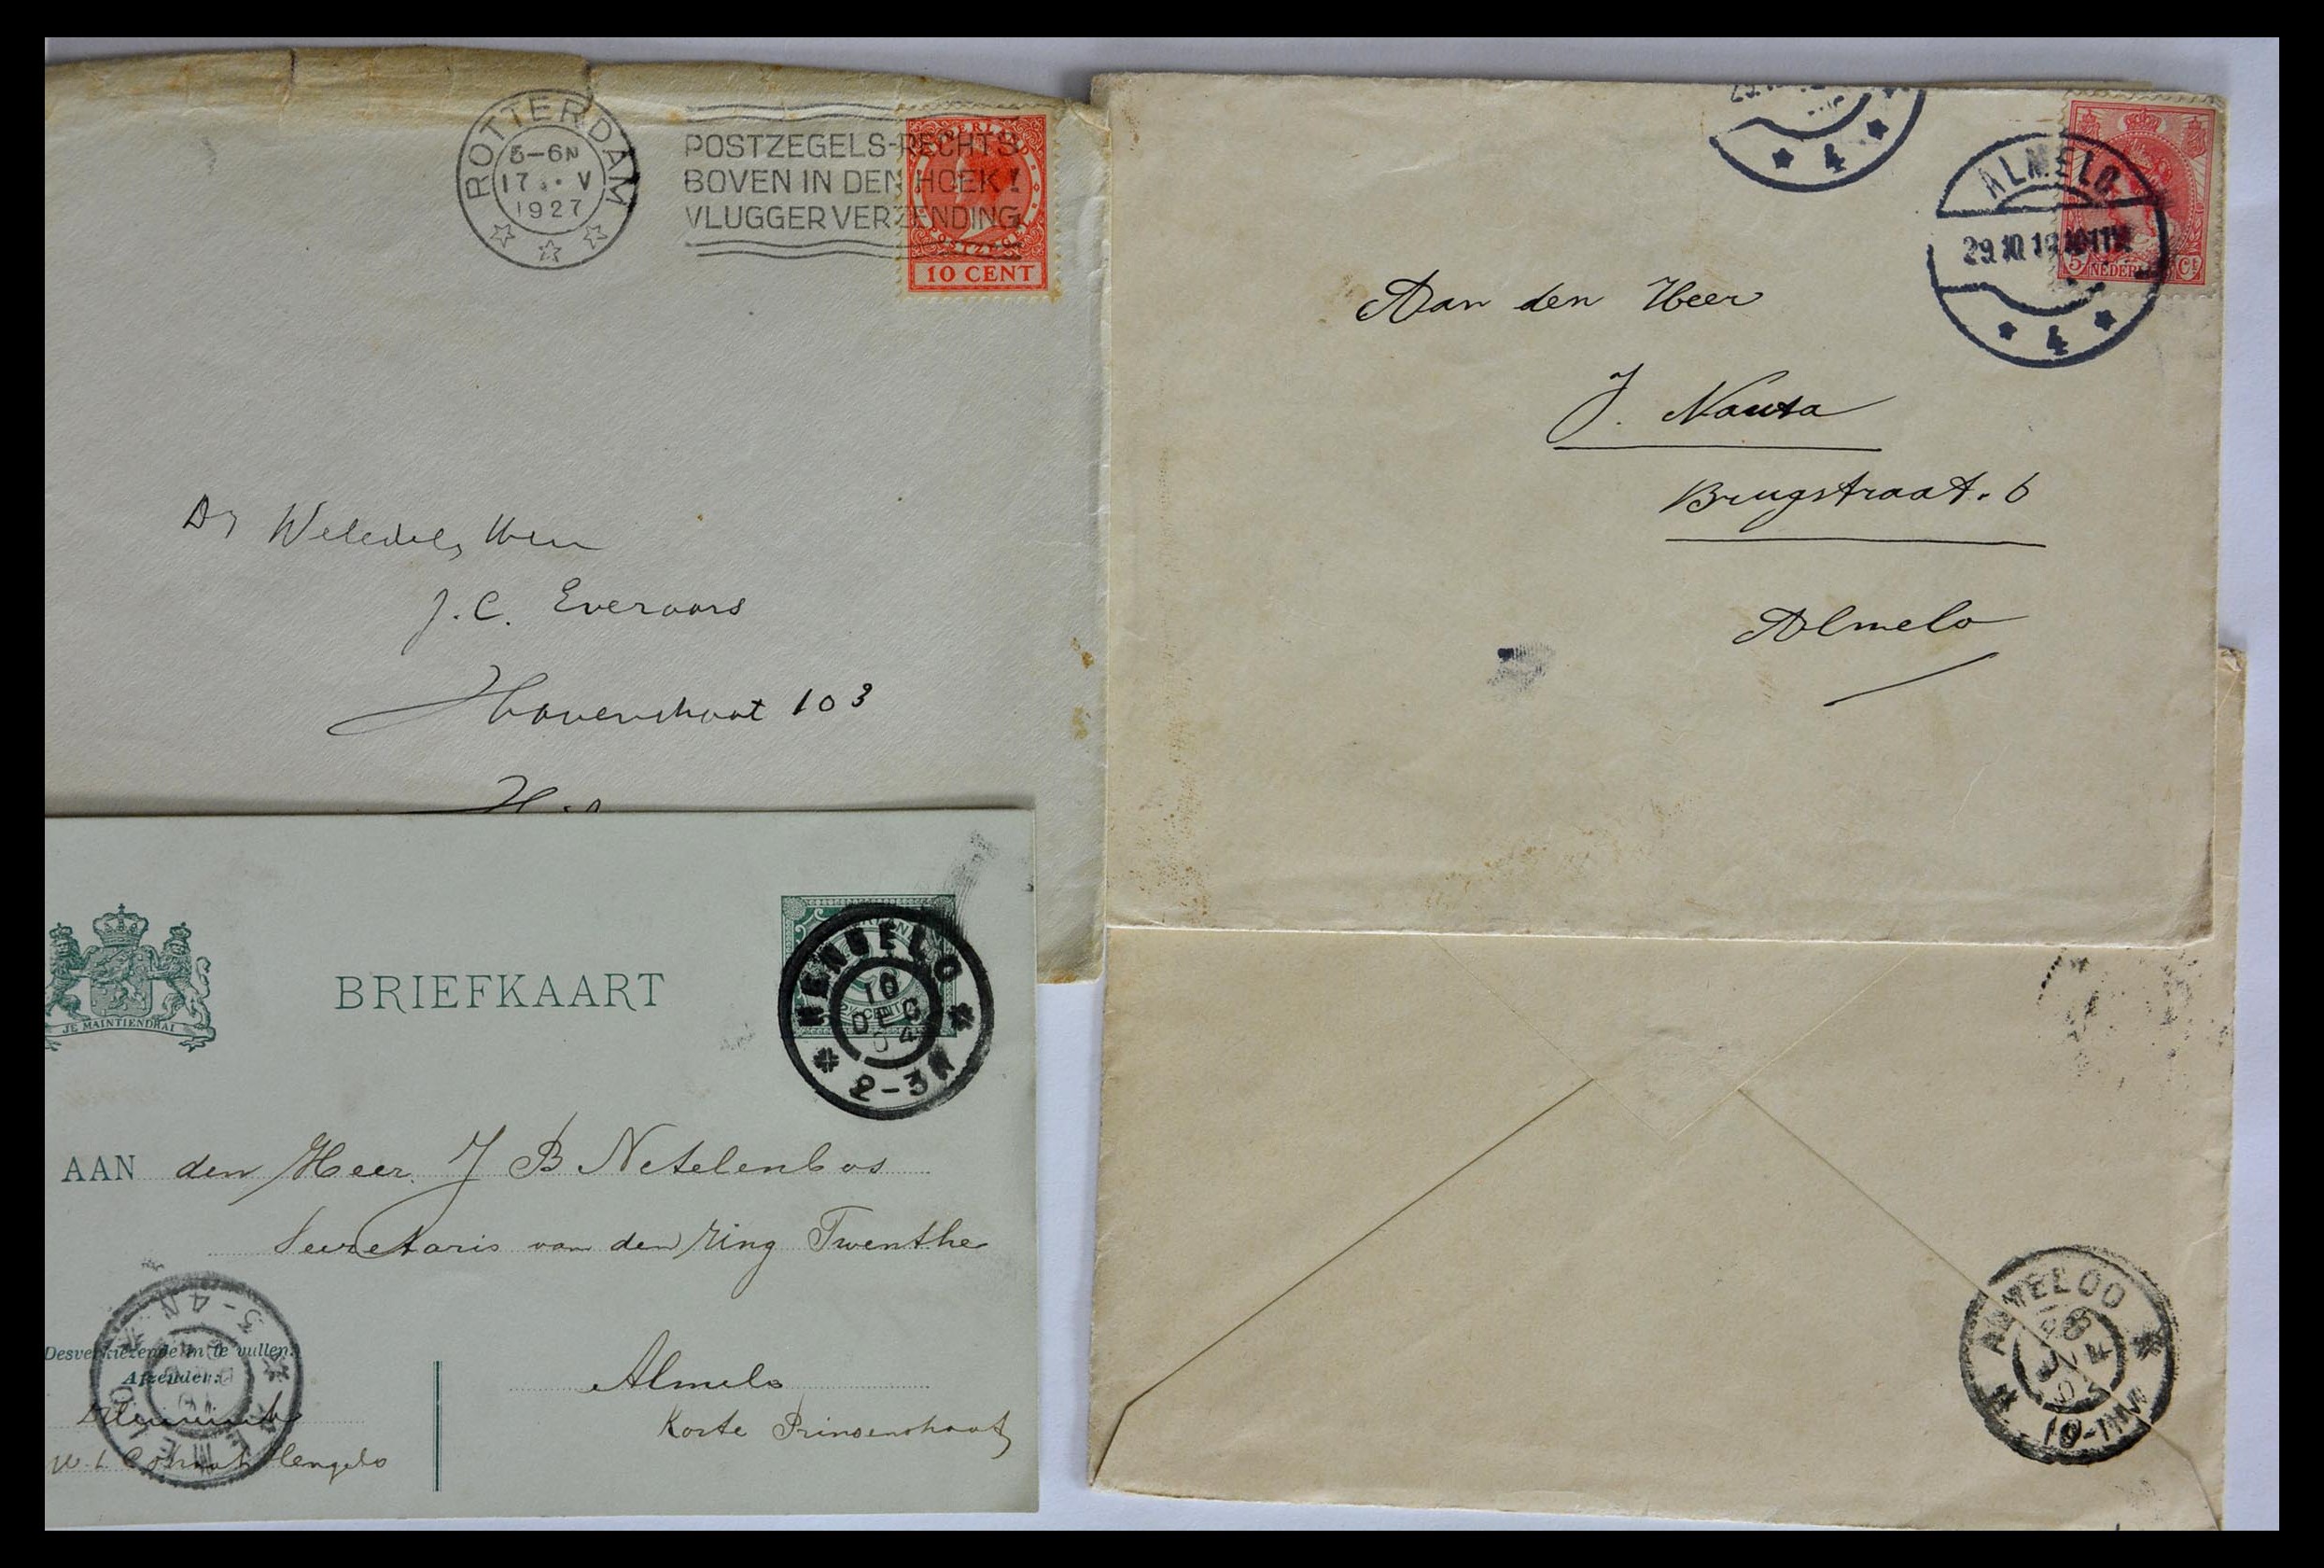 ROTTERDAM
5-6N
17 V
1927
POSTZEGELS-RECHTS
BOVEN IN DEN HOEK!
VLUGGER VERZENDING
10 CENT
J.C. Everaars
Havenstraat 103
4
ALMELO
29.10.19 10-11V
4
5 NEDERL Ct
Aan den Heer
J. Nauta
Brugstraat. 6
Almelo
JE MAINTIENDRAI
BRIEFKAART
HENGELO
10
DEC
04
2-3N
AAN den Heer J B Netelenbos
Secretaris van den ring Twenthe
Almelo
Korte Prinsenstraat
3-4N
ALMELO
Desverkiezende in te vullen.
Afzender:
Hengelo
ALMELOO
10-11V